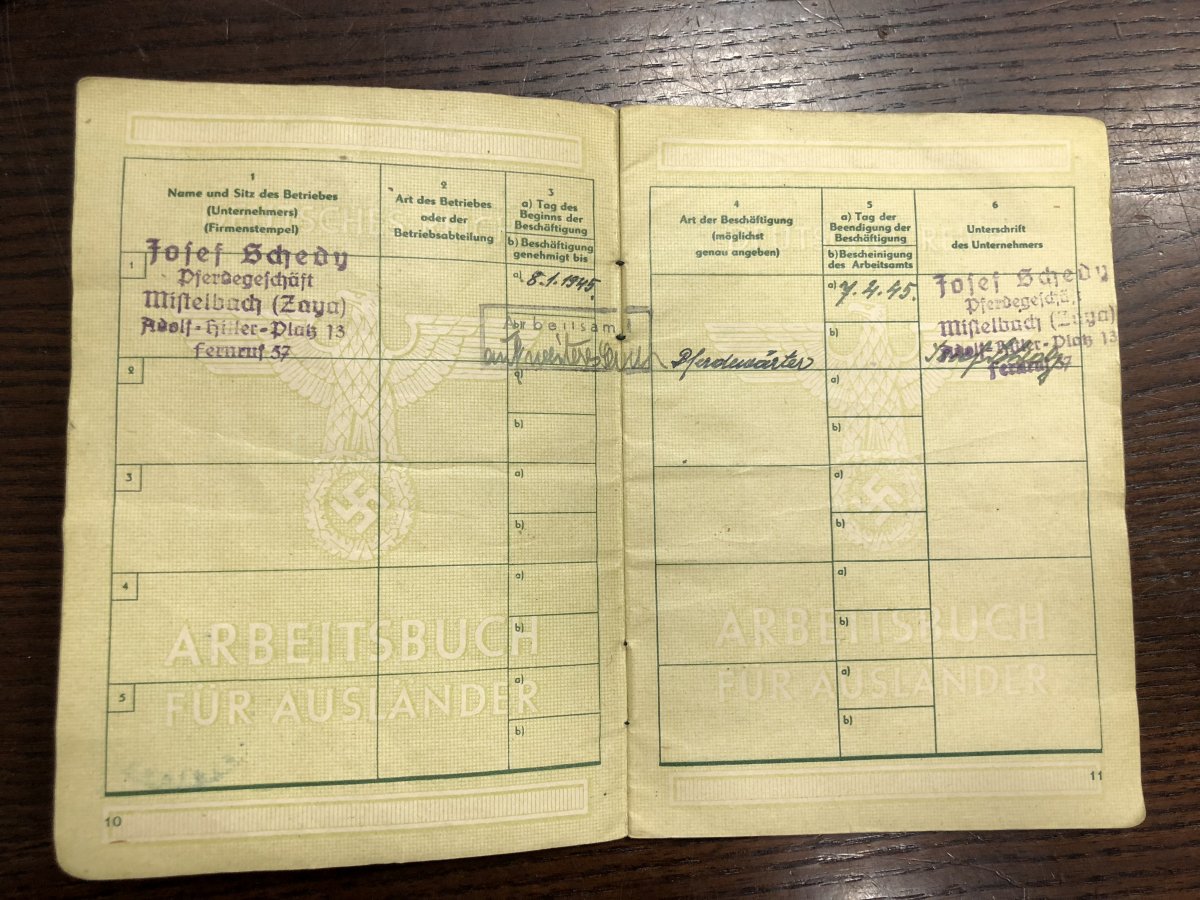 1
Name und Sitz des Betriebes
(Unternehmers)
(Firmenstempel)
2
Art des Betriebes
oder der
Betriebsabteilung
3
a) Tag des
Beginns der
Beschäftigung
b) Beschäftigung
genehmigt bis
1
Josef Schedy
Pferdegeschäft
Mistelbach (Zaya)
Adolf-Hitler-Platz 13
Fernruf 57
a) 8.1.1945.
Arbeitsamt
auf weiteres
2
a)
b)
3
a)
b)
4
a)
b)
5
a)
b)
DEUTSCHES REICH
ARBEITSBUCH
FÜR AUSLÄNDER
10
4
Art der Beschäftigung
(möglichst
genau angeben)
5
a) Tag der
Beendigung der
Beschäftigung
b) Bescheinigung
des Arbeitsamts
6
Unterschrift
des Unternehmers
Pferdewärter
a) 7.4.45.
b)
Josef Schedy
Pferdegeschäft
Mistelbach (Zaya)
Adolf-Hitler-Platz 13
Fernruf 57
a)
b)
a)
b)
a)
b)
a)
b)
DEUTSCHES REICH
ARBEITSBUCH
FÜR AUSLÄNDER
11